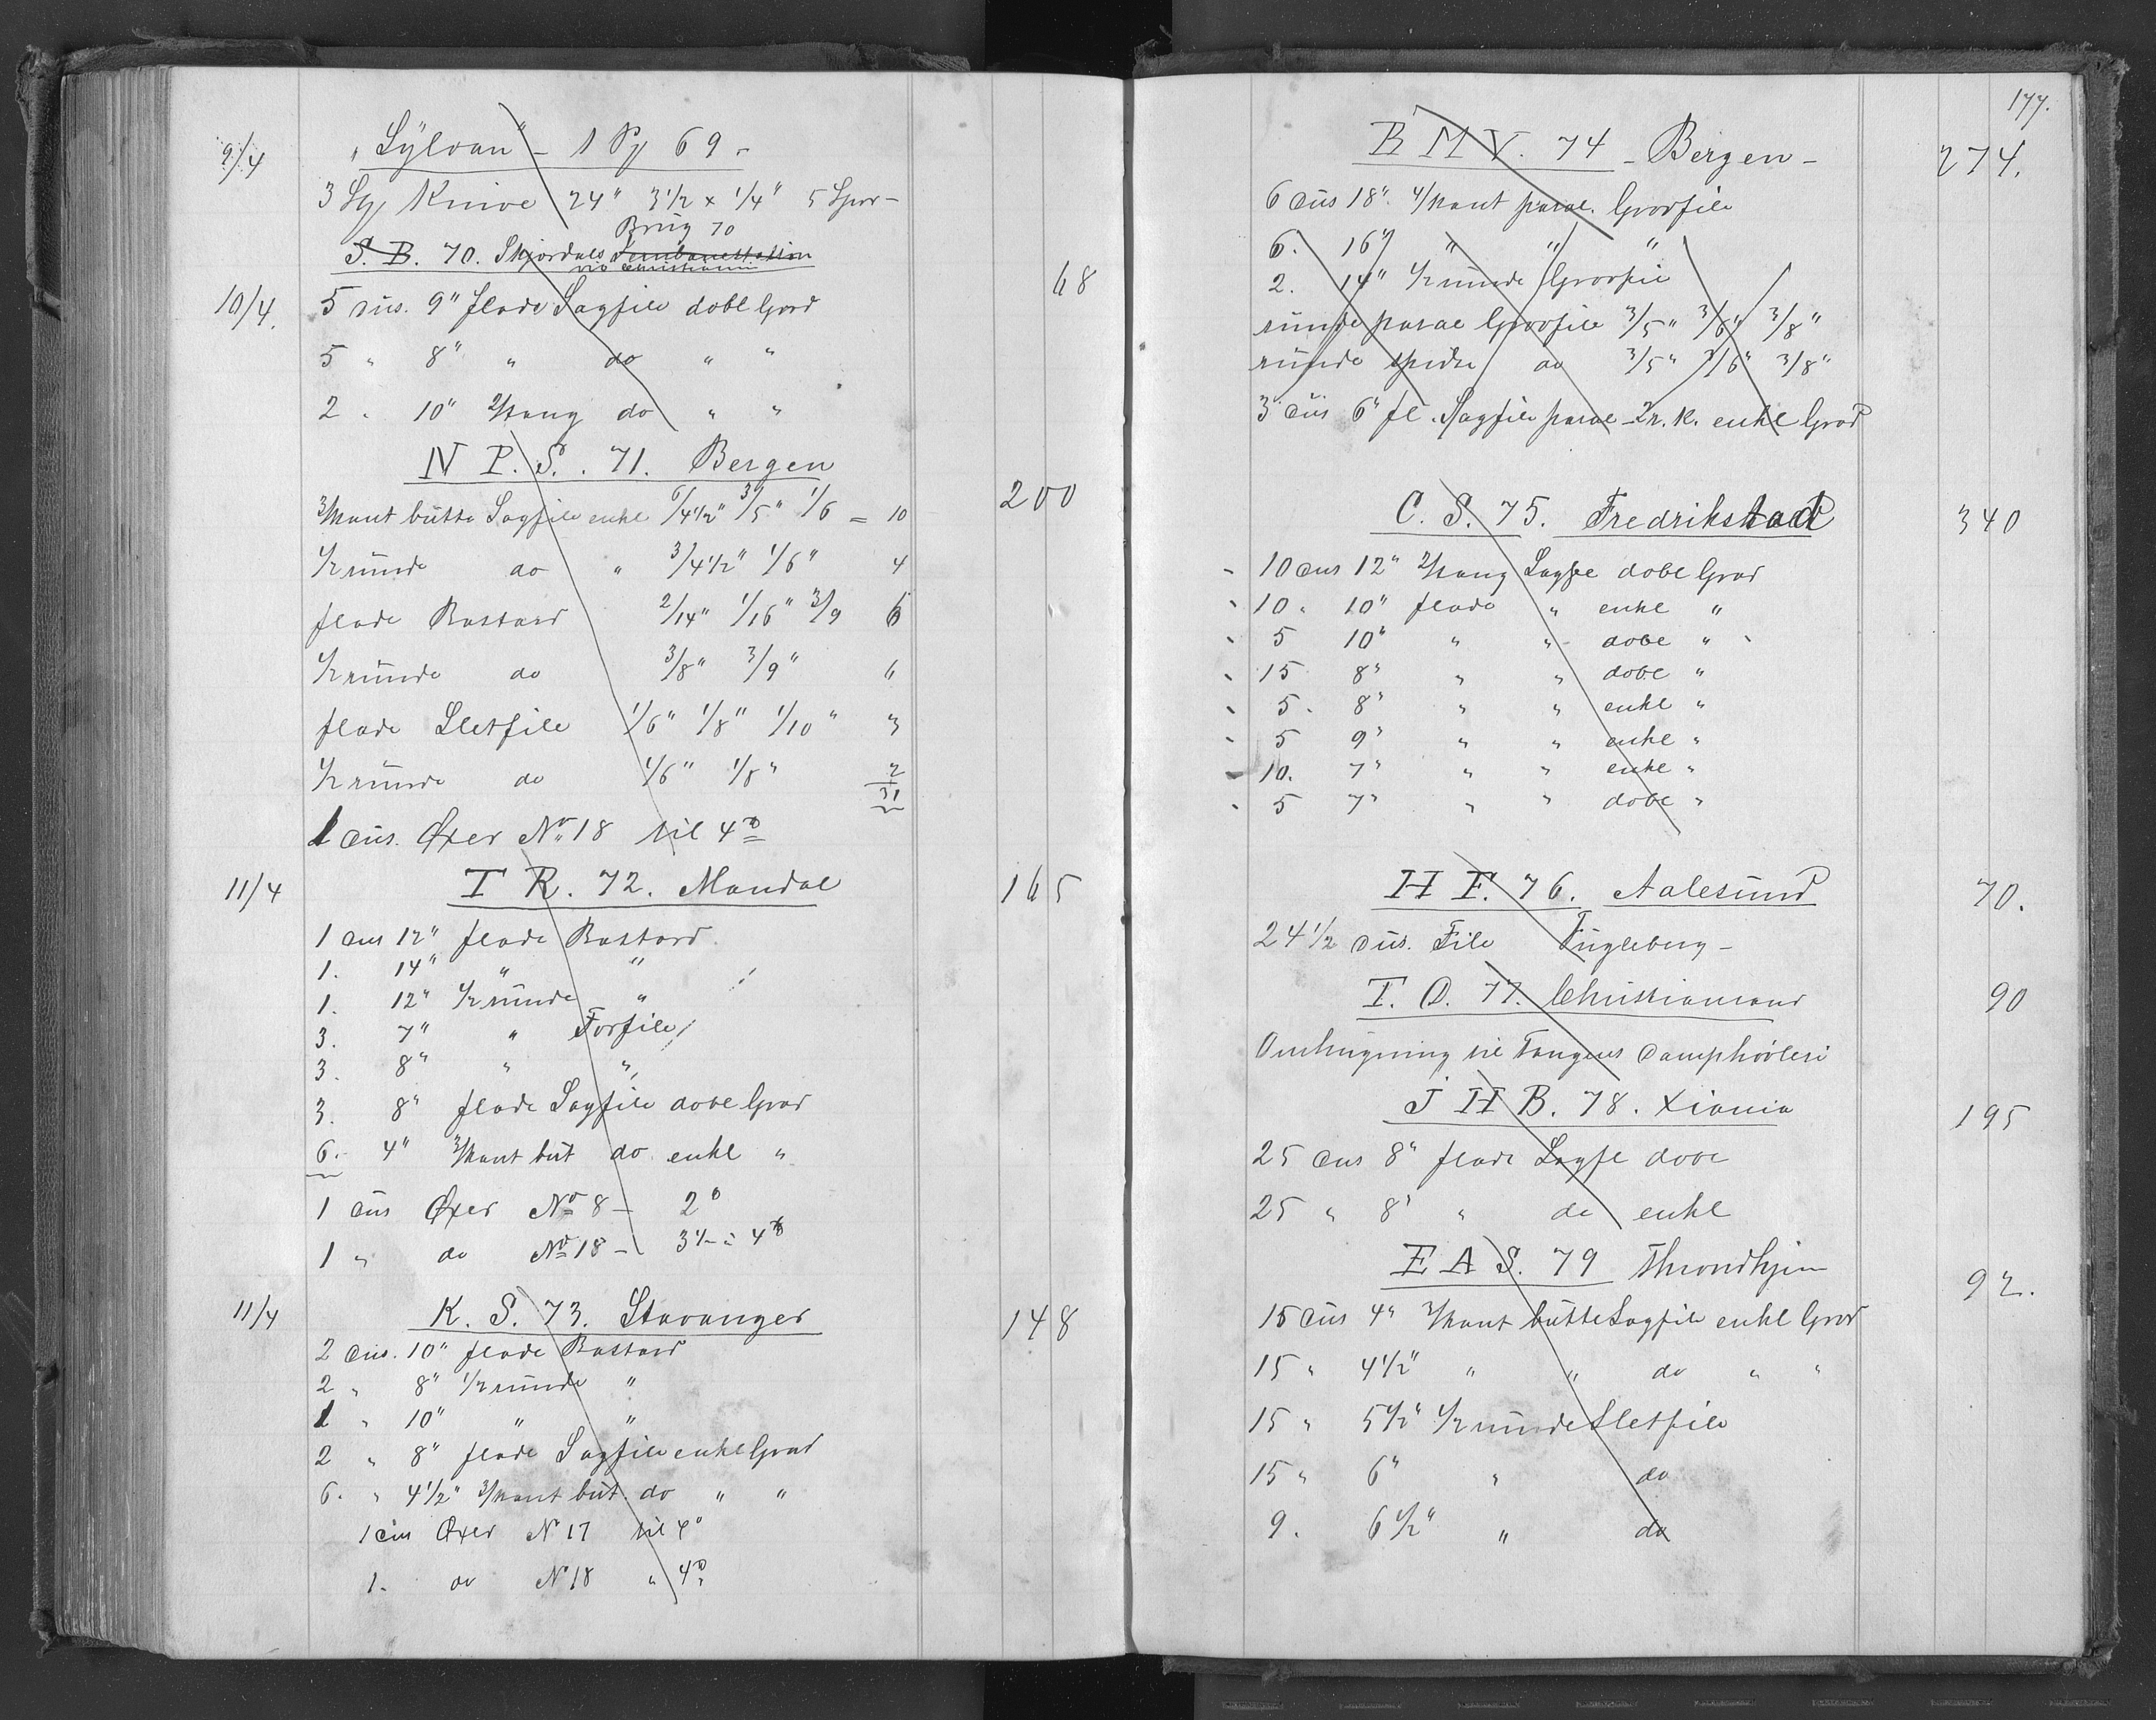 9/4 „Sylvan" - 1 Pg 69 -
3 Stg Knive 24" 3 1/2 x 1/4" 5 Spor -
Brüg 70
S. B. 70. Skjordals Jernbanestation 68
via Christiania
10/4. 5 dus. 9" flade Sagfile dobl Grad
5 " 8" " do " "
2 " 10" 2/kang do " "
N P. S. 71. Bergen 200
3/kant bütte Sagfile enkl 6/4 1/2" 3/5" 1/6 = 10
1/2 ründe do " 3/4 1/2" 1/6" 4
flade Bastard 2/14" 1/16" 3/9 6
1/2 ründe do 3/8" 3/9" 6
flade Sletfile 1/6" 1/8" 1/10" 3
1/2 runde do 1/6" 1/8" 2
31
1 dus. Øxer No 18 til 4 tb
11/4 T R. 72. Mandal 165
1 dus 12" flade Bastard
1. 14" " "
1. 12" 1/2 ründe "
3. 7" " Forfile
3. 8" " "
3. 8" flade Sagfile dobl Grad
6. 4" 3/kant büt do enkl "
1 dus Øxer No 8 - 2
1 " do No 18 - 3 1/2 a 4
11/4 K. S. 73. Stavanger 148
2 dus. 10" flade Bastard
2 " 8" 1/2 runde "
1 " 10" " "
2 " 8" flade Sagfile enkl Grad
6. " 4 1/2" 3/kant büt. do " "
1 dus Øxer N 17 til 4
1. do N 18 " 4
177.
B M V. 74 - Bergen - 274.
6 dus 18" 4/kant paral. Grovfile
6. 16" " " "
2. 14" 1/2 runde Grovfil
runde paral Grovfile 3/5" 3/6" 3/8"
runde spidse do 3/5" 3/6" 3/8"
3 dus 6" fl. Sagfile paral - 2 r. K. enkl Grad
C. S. 75. Fredrikstad 340
10 dus 12" 2/kang Sagfle dobl Grad
10. 10" flade " enkl "
5 10" " " dobl "
15 8" " " dobl "
5. 8" " " enkl "
5 9" " " enkl "
10. 7" " " enkl "
5 7" " " dobl "
H F. 76. Aalesund 70.
24 1/2 dus. File Fügleberg -
T. O. 77. Christiansand 90
Omhugning til Tangens Damphövleri
J H B. 78. Xiania 195
25 dus 8" flade Sagfl dobl
25 " 8" " do enkl
E A S. 79 Throndhjem 92.
15 dus 4" 3/kant bütte Sagfile enkl Grad
15 " 4 1/2" " " do " "
15 " 5 1/2" 1/2 runde Sletfile
15 " 6" " do
9. 6 1/2" " do